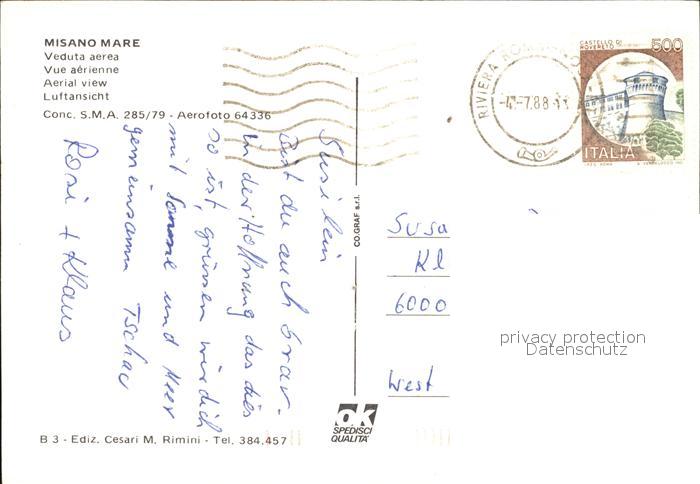 MISANO MARE
Veduta aerea
Vue aérienne
Aerial view
Luftansicht
Conc. S.M.A. 285/79 - Aerofoto 64336
Susilein
Bist du auch brav.
In der Hoffnung das dies
so ist, grüssen wir dich
mit Sonne und Meer
gemeinsamm Tschau
Rosi + Klaus
CO.GRAF s.r.l.
RIVIERA
-7.88
CASTELLO DI
ROVERETO
500
ITALIA
Susa
Kl
6000
West
privacy protection
Datenschutz
ok
SPEDISCI
QUALITÀ
B 3 - Ediz. Cesari M. Rimini - Tel. 384.457